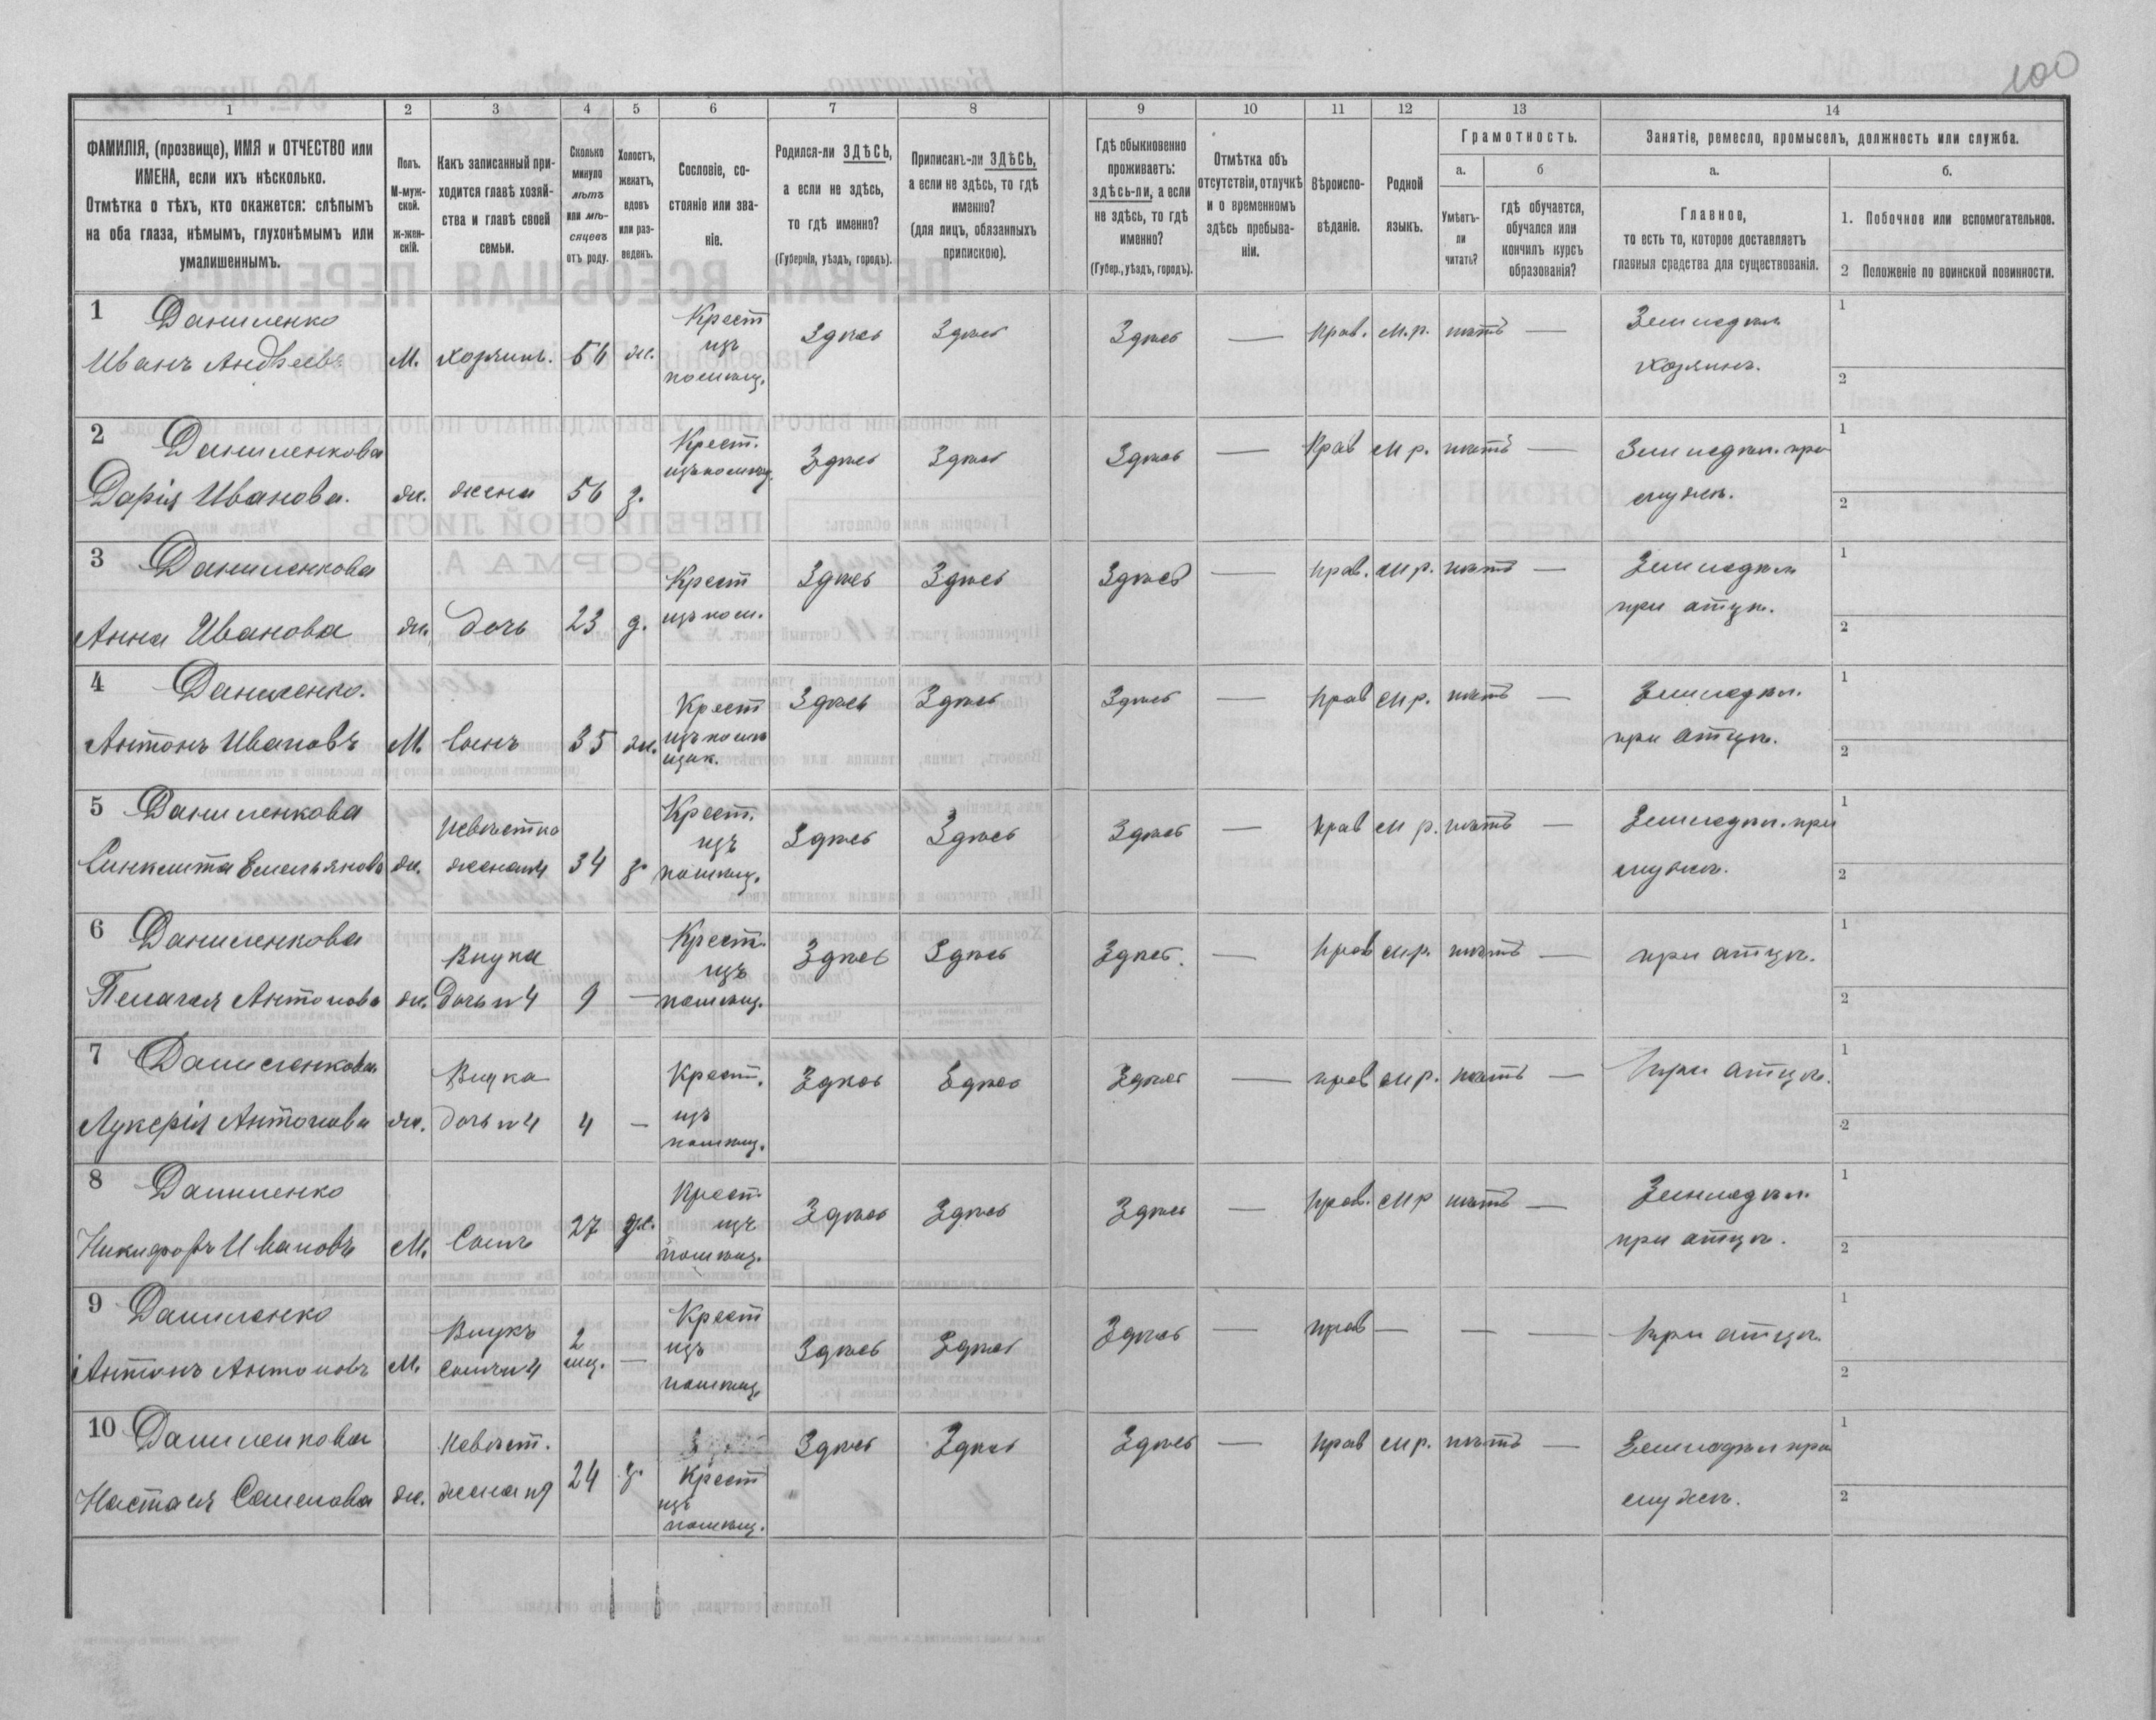 100
1 2 3 4 5 6 7 8 9 10 11 12 13 14
ФАМИЛІЯ, (прозвище), ИМЯ и ОТЧЕСТВО или
ИМЕНА, если ихъ нѣсколько.
Отмѣтка о тѣхъ, кто окажется: слѣпымъ
на оба глаза, нѣмымъ, глухонѣмымъ или
умалишеннымъ.
Полъ.
М-муж-
ской.
ж-жен-
скій.
Какъ записанный при-
ходится главѣ хозяй-
ства и главѣ своей
семьи.
Сколько
минуло
лѣтъ
или мѣ-
сяцевъ
отъ роду.
Холостъ,
женатъ,
вдовъ
или раз-
веденъ.
Сословіе, со-
стояніе или зва-
ніе.
Родился-ли ЗДѢСЬ,
а если не здѣсь,
то гдѣ именно?
(Губернія, уѣздъ, городъ).
Приписанъ-ли ЗДѢСЬ,
а если не здѣсь, то гдѣ
именно?
(для лицъ, обязанныхъ
припискою).
Гдѣ обыкновенно
проживаетъ:
здѣсь-ли, а если
не здѣсь, то гдѣ
именно?
(Губер., уѣздъ, городъ).
Отмѣтка объ
отсутствіи, отлучкѣ
и о временномъ
здѣсь пребыва-
ніи.
Вѣроиспо-
вѣданіе.
Родной
языкъ.
Грамотность.
а.
Умѣетъ-
ли
читать?
б
гдѣ обучается,
обучался или
кончилъ курсъ
образованія?
Занятіе, ремесло, промыселъ, должность или служба.
а.
Главное,
то есть то, которое доставляетъ
главныя средства для существованія.
б.
1. Побочное или вспомогательное.
2 Положеніе по воинской повинности.
1 Даниленко
Иванъ Андреевъ М. хозяинъ. 56 ж. Крест
изъ
помѣщ. Здѣсь Здѣсь Здѣсь — Прав. м.р. нѣтъ — Земледѣл
хозяинъ. 1
2
2 Даниленкова
Дарія Иванова. ж. жена 56 з. Крест.
изъ помѣщ. Здѣсь Здѣсь Здѣсь — Прав м р. нѣтъ — Земледѣл. при
мужѣ. 1
2
3 Даниленкова
Анна Иванова ж. дочь 23 д. Крест
изъ пом. Здѣсь Здѣсь Здѣсь — прав. м р. нѣтъ — Земледѣл
при атцѣ. 1
2
4 Даниленко.
Антонъ Ивановъ М. Сынъ 35 ж. Крест
изъ помѣ
щик. Здѣсь Здѣсь Здѣсь — прав м р. нѣтъ — Земледѣл.
при атцѣ. 1
2
5 Даниленкова
Синклита Емельянова ж. невѣстка
жена №4 34 з. Крест.
изъ
помѣщ. Здѣсь Здѣсь Здѣсь — прав м р. нѣтъ — Земледѣл. при
мужѣ. 1
2
6 Даниленкова
Пелагея Антонова ж. Внука
Дочь №4 9 — Крест.
изъ
помѣщ. Здѣсь Здѣсь Здѣсь. — прав м р. нѣтъ — при атцѣ. 1
2
7 Даниленкова
Лукерія Антонова ж. Внука
дочь №4 4 — Крест.
изъ
помѣщ. Здѣсь Здѣсь Здѣсь — прав м р. нѣтъ — при атцѣ. 1
2
8 Даниленко
Никифоръ Ивановъ М. Сынъ 27 ж. Крест.
изъ
помѣщ. Здѣсь Здѣсь Здѣсь — прав. м р нѣтъ — Земледѣл.
при атцѣ. 1
2
9 Даниленко
Антонъ Антоновъ М. Внукъ
Сынъ №4 2
мц. — Крест
изъ
помѣщ. Здѣсь Здѣсь Здѣсь — прав — — — при атцѣ. 1
2
10 Даниленкова
Настася Семенова ж. Невѣст.
жена №9 24 з. Крест
изъ
помѣщ. Здѣсь Здѣсь Здѣсь — прав м р. нѣтъ — Земледѣл при
мужѣ. 1
2